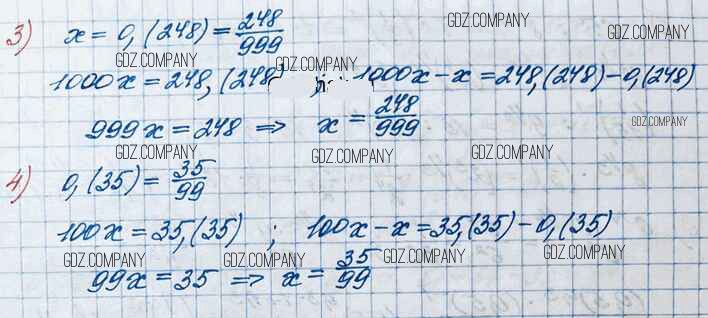 3) x = 0,(248) = 248/999
1000x = 248,(248) ; 1000x - x = 248,(248) - 0,(248)
999x = 248 => x = 248/999
4) 0,(35) = 35/99
100x = 35,(35) ; 100x - x = 35,(35) - 0,(35)
99x = 35 => x = 35/99
GDZ.COMPANY
GDZ.COMPANY
GDZ.COMPANY
GDZ.COMPANY
GDZ.COMPANY
GDZ.COMPANY
GDZ.COMPANY
GDZ.COMPANY
GDZ.COMPANY
GDZ.COMPANY
GDZ.COMPANY
GDZ.COMPANY
GDZ.COMPANY